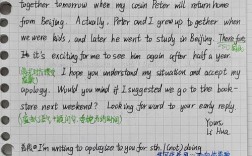 together tomorrow when my cosin Peter will return home
from Beijing. Actually, Peter and I grew up together when
we were kids, and later he went to study in Beijing. Therefore,
it's exciting for me to see him again after half a year.
I hope you understand my situation and accept my
apology. Would you mind if I suggested we go to the book-
store next weekend? Looking forward to your early reply
Yours,
Li Hua
I'm writing to apologize to you for sth / (not) doing